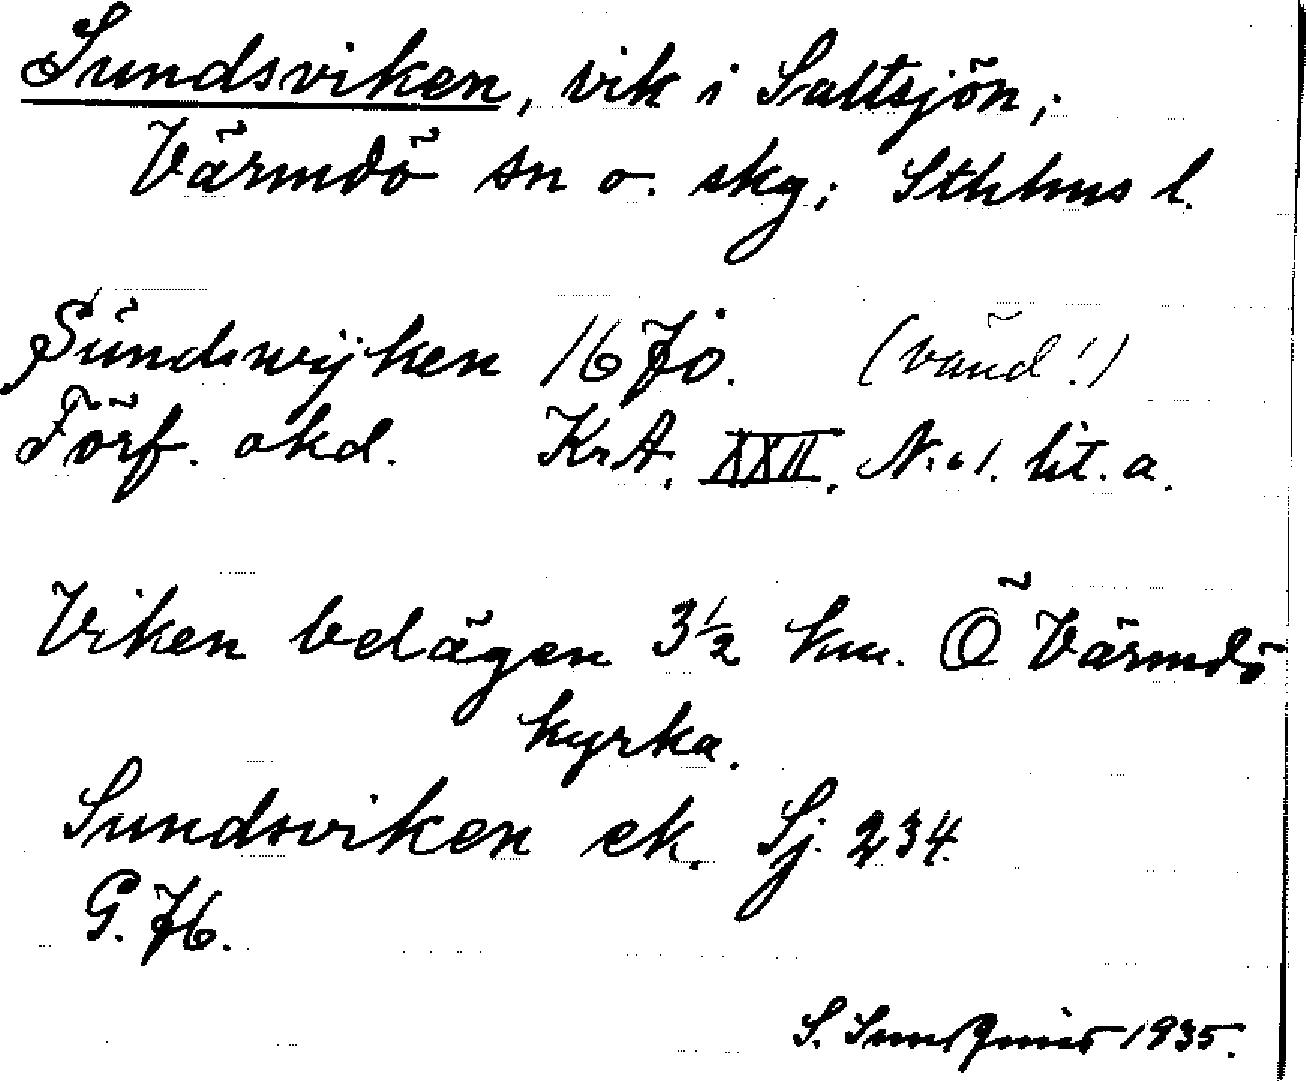 Sundsviken, vik i Saltsjön,;
Värmdö sn o. skg; Sthlms l.
Sundzwijken 1670. (vänd!)
Förf. okd. Kr.A. XXII. N:o 1. lit. a.
Viken belägen 3½ km. Ö Värmdö
kyrka.
Sundsviken ek. Sj. 234.
G. 76.
S. Sundquist 1935.